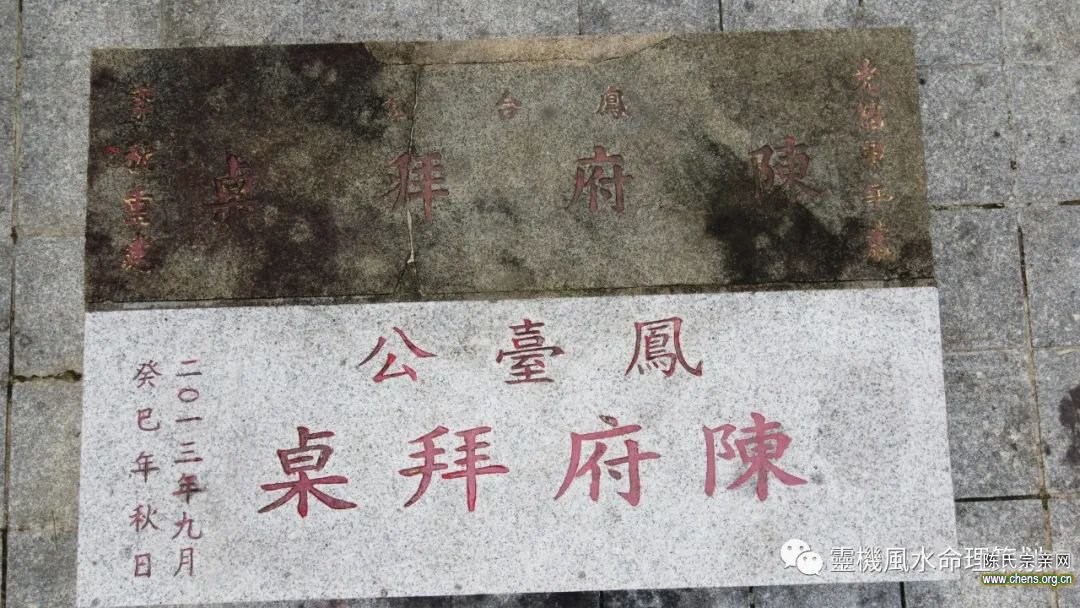 鳳台公
陳府拜桌
季秋重建
鳳臺公
陳府拜桌
二〇一三年九月
癸巳年秋日
靈機風水命理策划
陈氏宗亲网
www.chens.org.cn